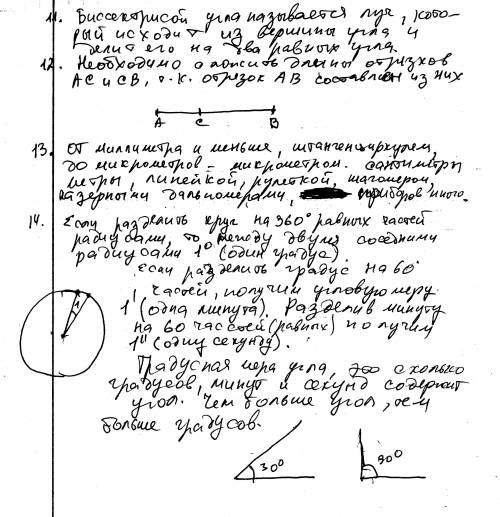 11. Биссектрисой угла называется луч, кото-
рый исходит из вершины угла и
делит его на два равных угла.
12. Необходимо сложить длины отрезков
AC и CB, т.к. отрезок AB составлен из них
A C B
13. От миллиметра и меньше, штангенциркулем,
до микрометров - микрометром. сантиметры
метры, линейкой, рулеткой, шагомером,
лазерными дальномерами, приборов много.
14. Если разделить круг на 360° равных частей
радиусами, то между двумя соседними
радиусами 1° (один градус).
Если разделить градус на 60°
частей, получим угловую меру
1' (одна минута). Разделив минуту
на 60 частей (равных) получим
1" (одну секунду).
Градусная мера угла, это сколько
градусов, минут и секунд содержит
угол. Чем больше угол, тем
больше градусов.
30° 90°